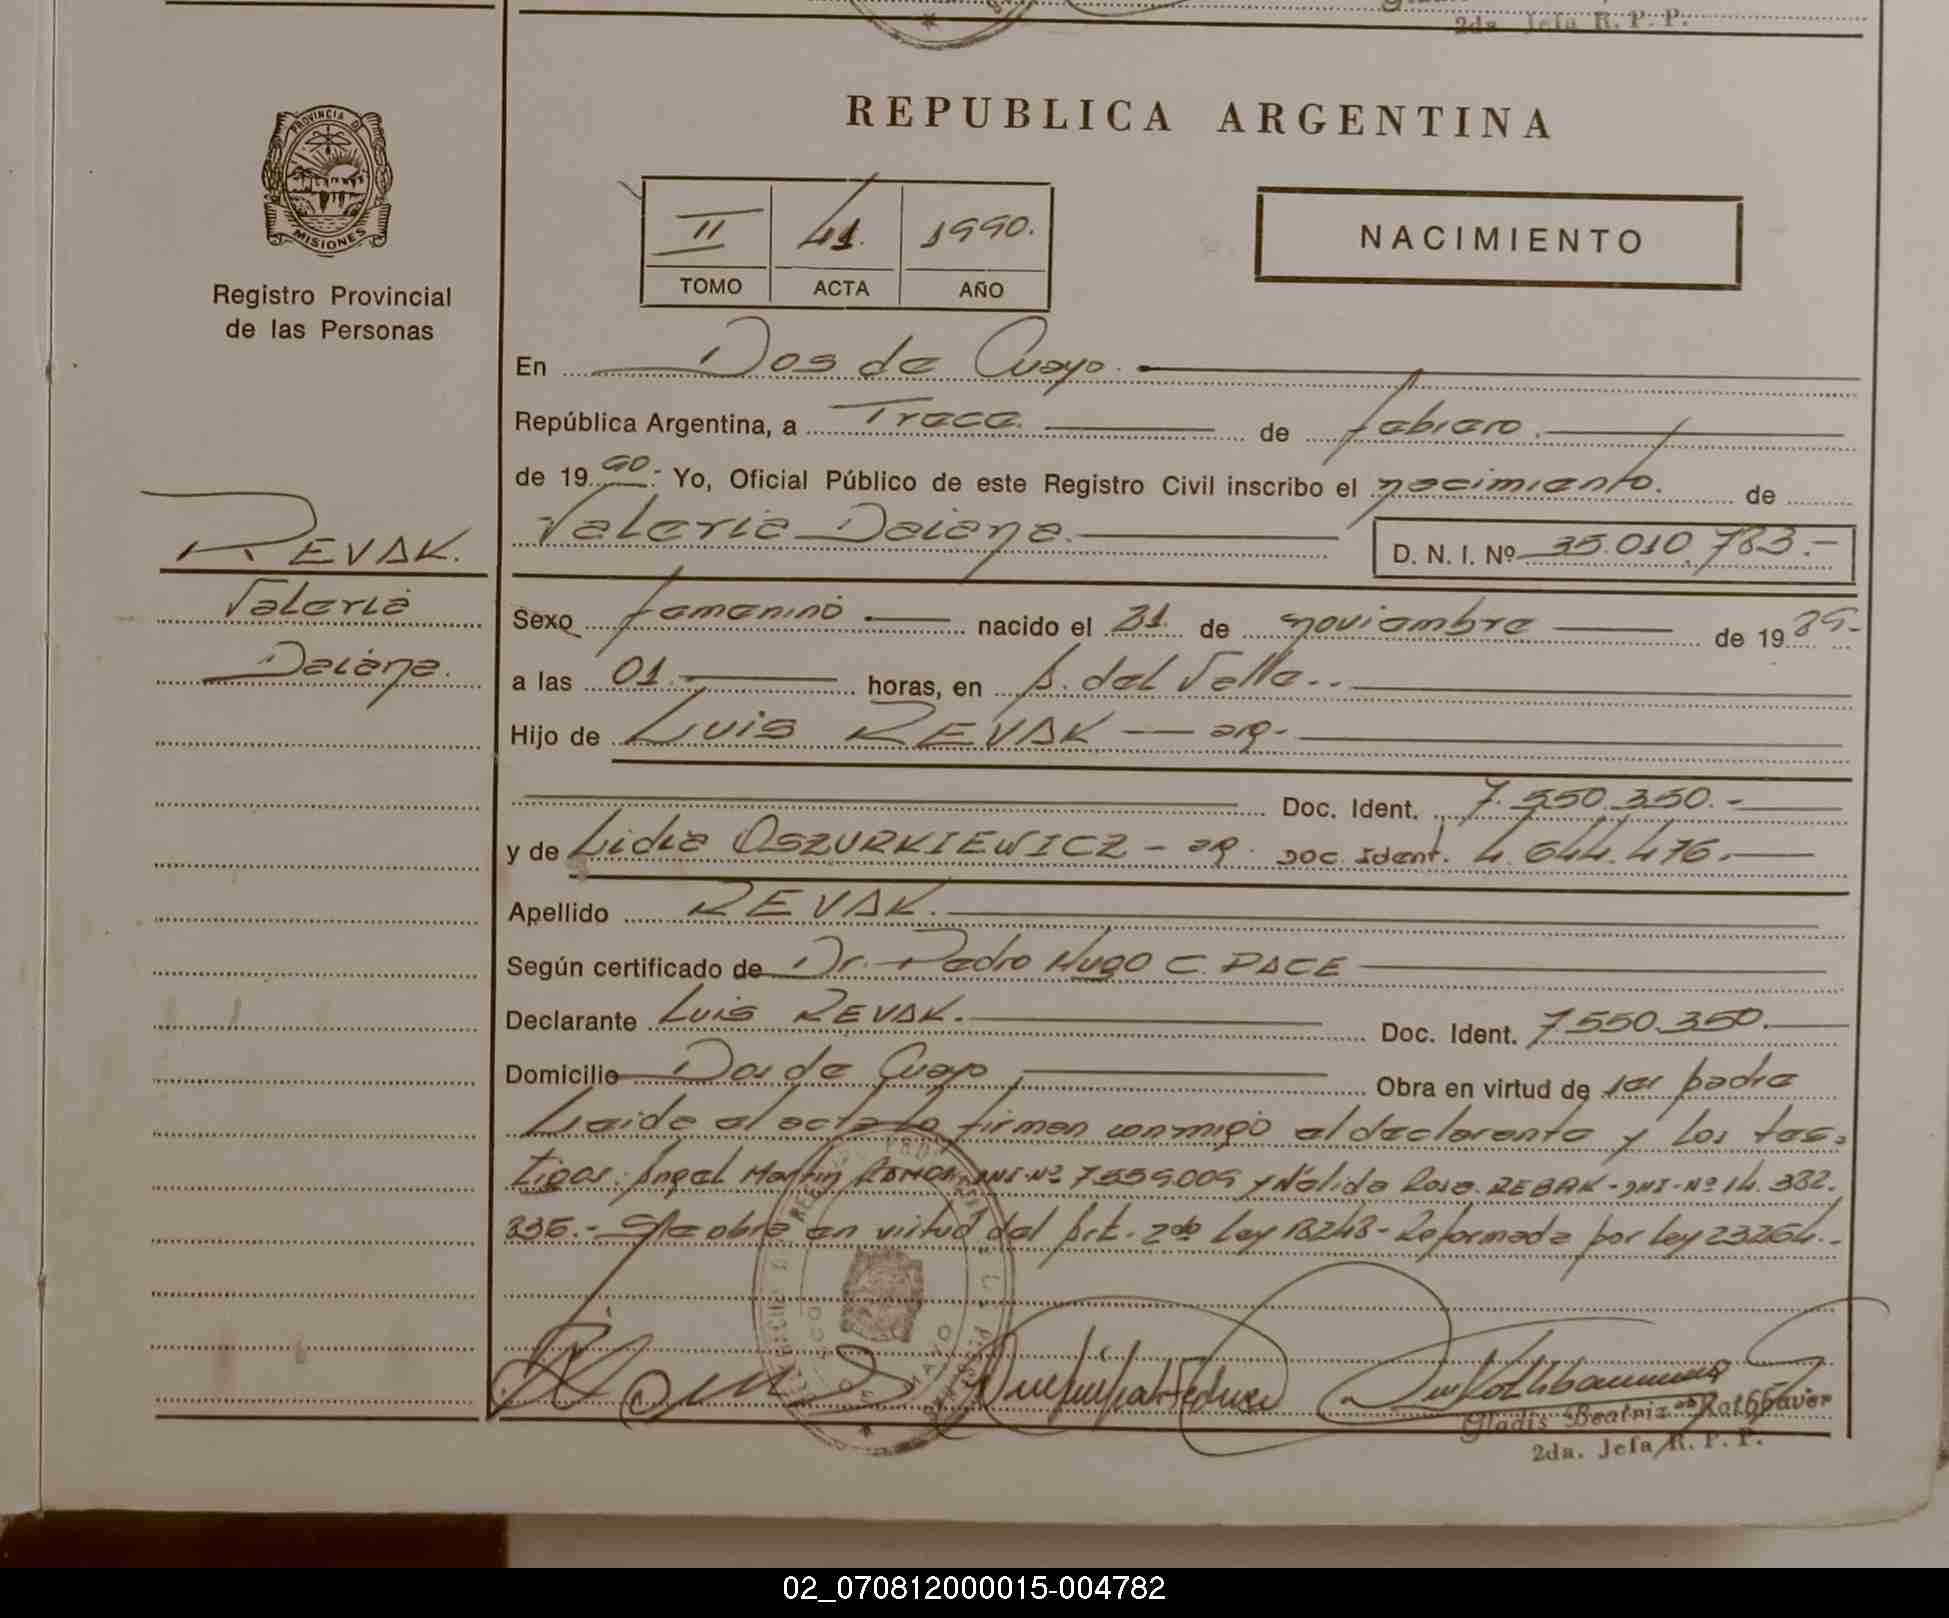 2da. Jefa R. P. P.
REPUBLICA ARGENTINA
PROVINCIA DE
MISIONES
Registro Provincial
de las Personas
II 41. 1990.
TOMO ACTA AÑO
NACIMIENTO
En Dos de Mayo.
República Argentina, a Trece. de febrero.
de 19 90. Yo, Oficial Público de este Registro Civil inscribo el nacimiento. de
Valeria Daiana. D. N. I. Nº 35.010.783.-
REVAK.
Valeria
Daiana.
Sexo femenino nacido el 21. de noviembre de 19 89.-
a las 01. horas, en A. del Valle..
Hijo de Luis REVAK — ar.-
Doc. Ident. 7.550.350.-
y de Lidia OSZURKIEWICZ - ar. Doc. Ident. 4.644.476.
Apellido REVAK.
Según certificado de Dr. Pedro Hugo C. PACE
Declarante Luis REVAK. Doc. Ident. 7.550.350.
Domicilio Dos de Mayo Obra en virtud de ser padre
Leída el acta la firman conmigo el declarante y los tes-
tigos: Angel Martin RAMOS, DNI-Nº 7559009 y Nélida Rosa REBAK-DNI-Nº 14.382.
335.- Ste obra en virtud del Art. 2do Ley 18248-Reformada por Ley 23264.-
Gladis Beatriz Rothbauer
2da. Jefa R. P. P.
02_070812000015-004782